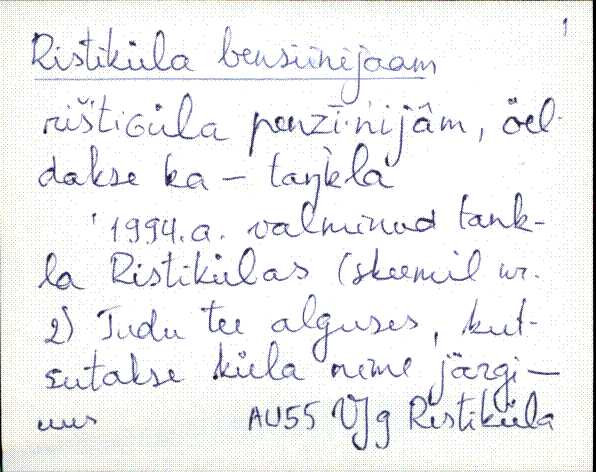 1
Ristiküla bensiinijaam
rištiGüla penzī·nijâm, öel-
dakse ka – taŋ̀kla
1994.a. valminud tank-
la Ristikülas (skeemil nr.
2) Tudu tee alguses, kut-
sutakse küla nime järgi –
uus AU55 VJg Ristiküla